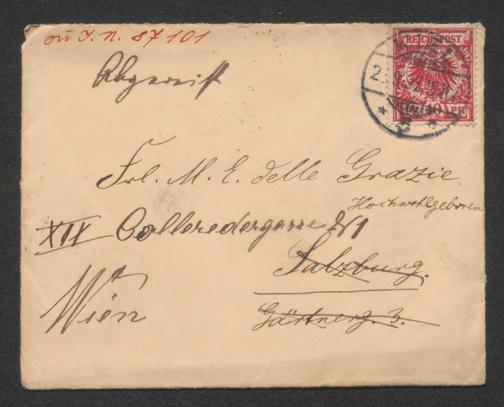 zu I. N. 87101
Abgereist
REICHSPOST
10 PF
2
5
Frl. M. E. delle Grazie
Hochwohlgeboren
XIX Colleredergasse 21
Salzburg.
Wien
Gärtnerg. 3.